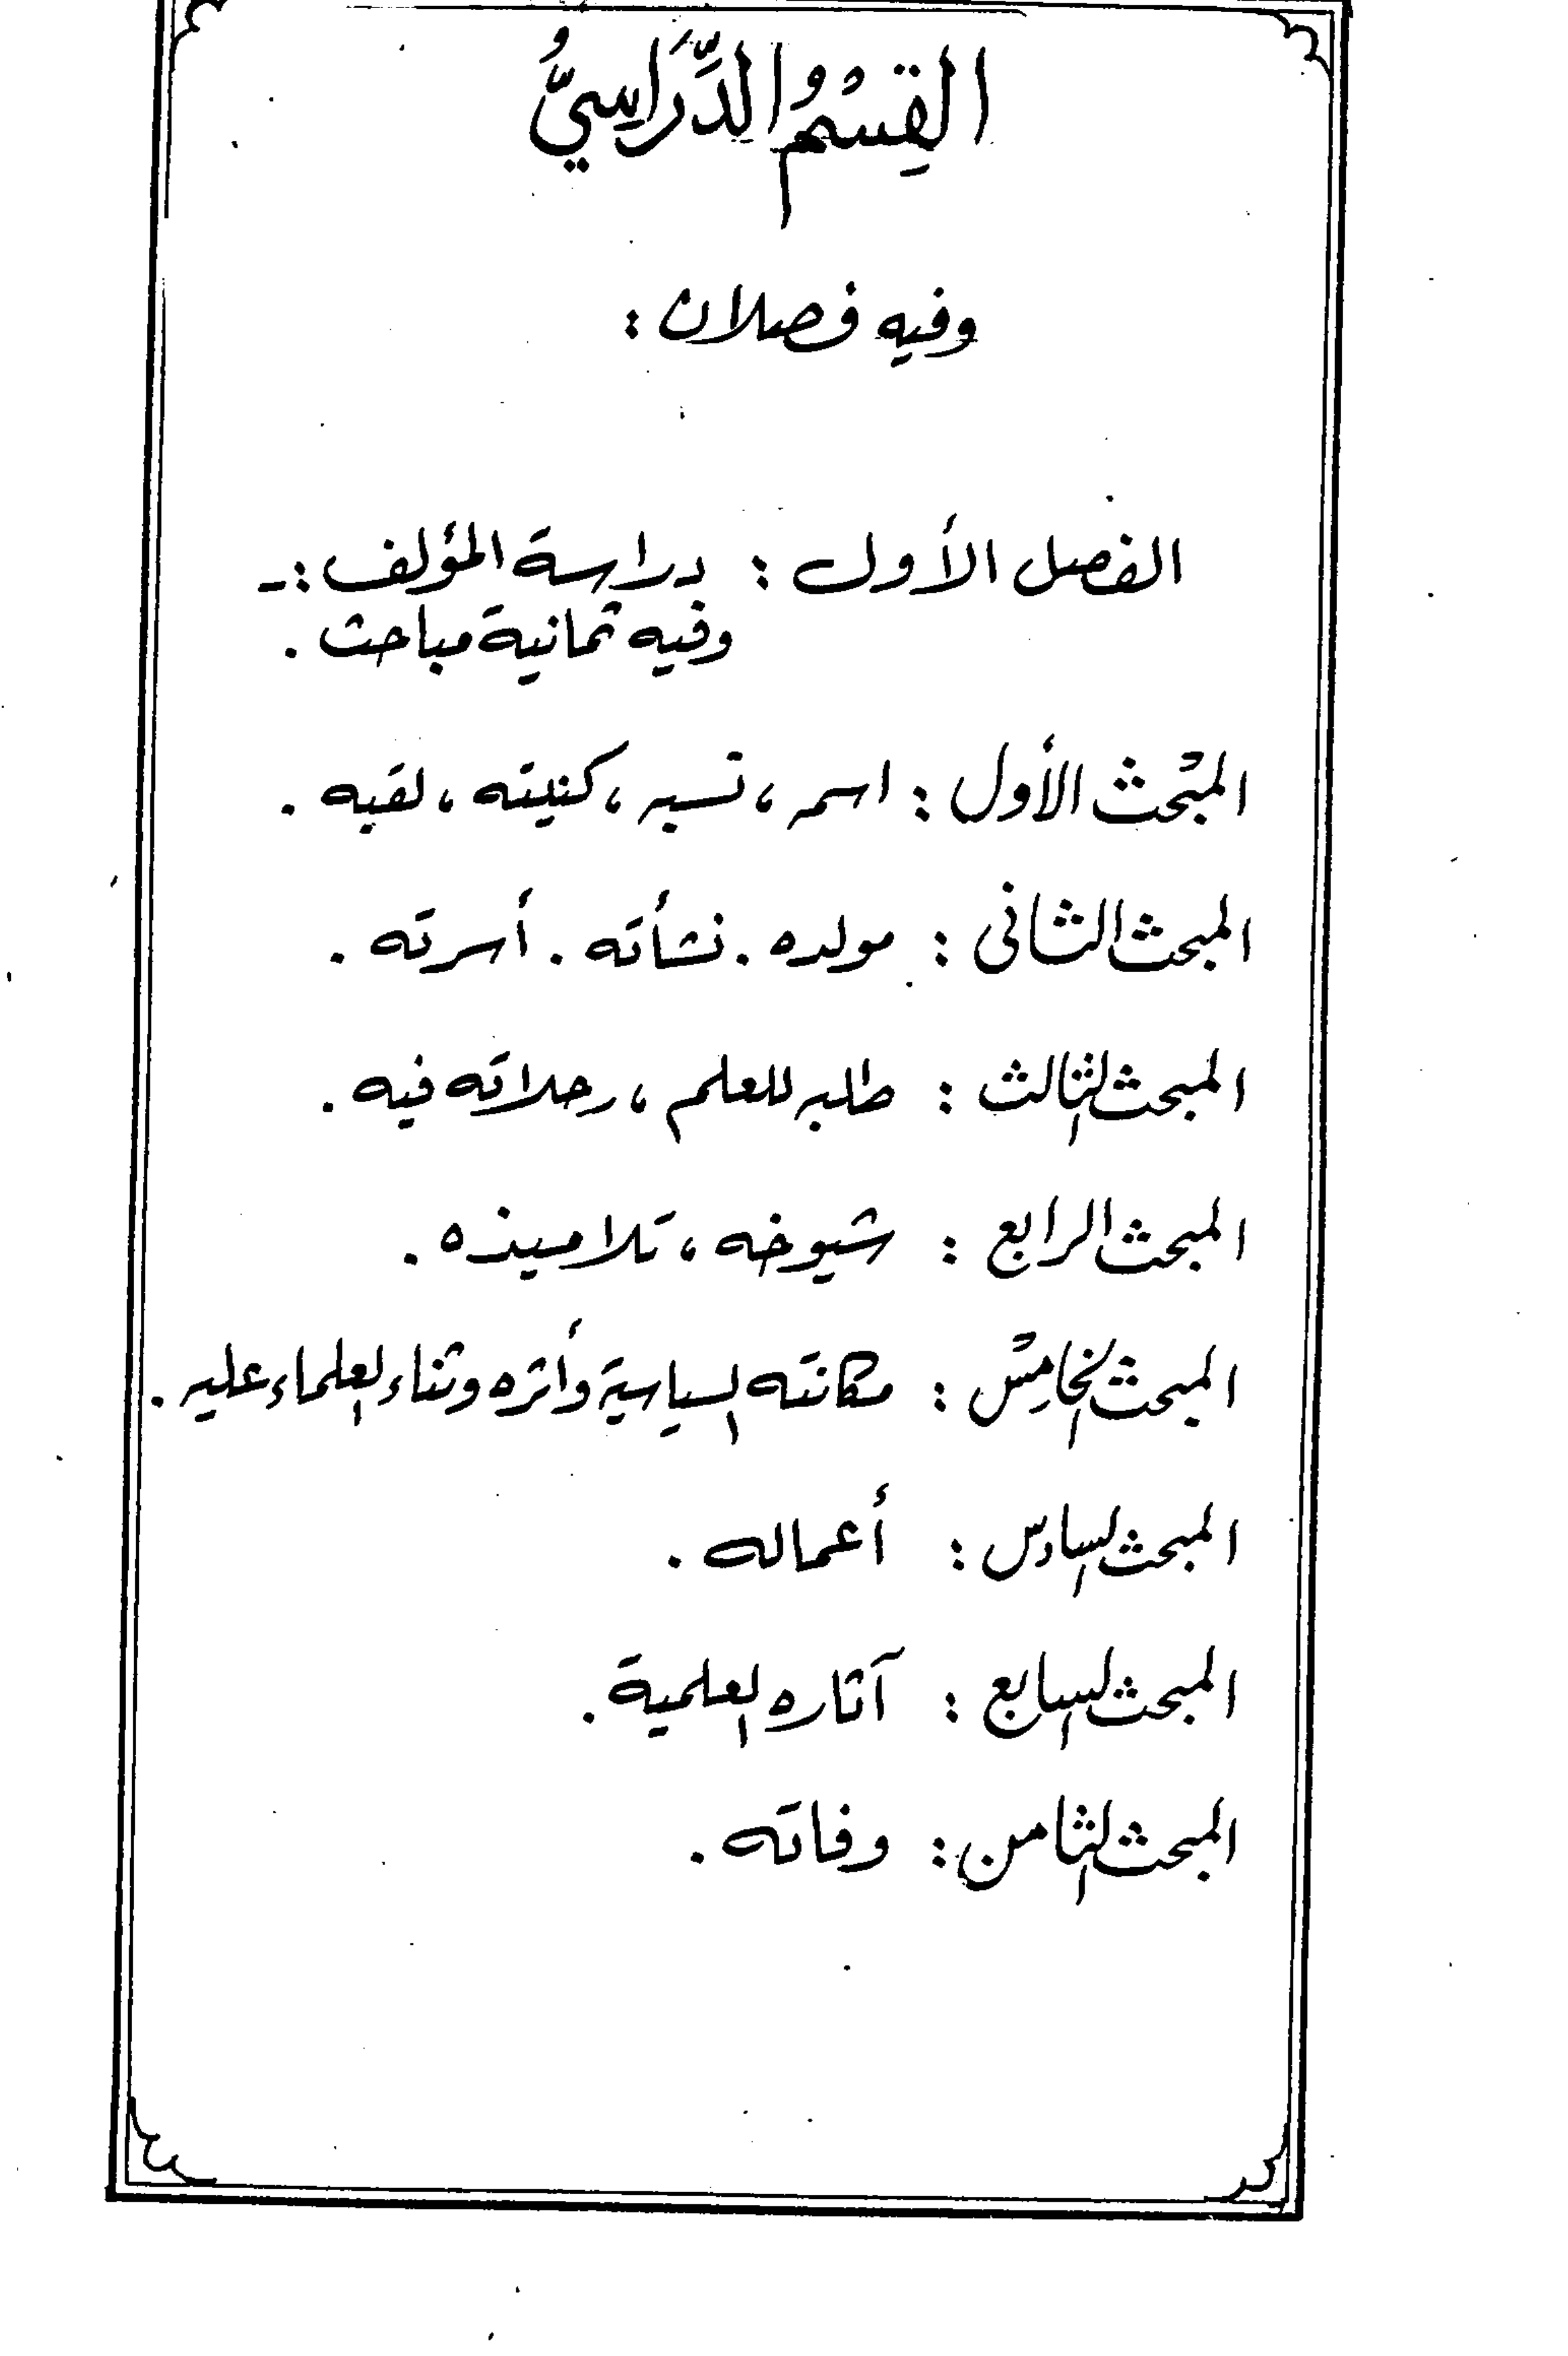 القِسْمُ الدِّرَاسِيُّ
وفيه فصلان :
الفصل الأول : دراسة المؤلف :ـ
وفيه ثمانية مباحث .
المبْحث الأول : اسمه ، نسبه ، كنيته ، لقبه .
المبحث الثانى : مولده . نشأته . أسرته .
المبحث الثالث : طلبه للعلم ، رحلاته فيه .
المبحث الرابع : شيوخه ، تلاميذه .
المبحث الخامِسْ : مكانته السياسية وأثره وثناء العلماء عليه .
المبحث السادس : أعماله .
المبحث السابع : آثاره العلمية .
المبحث الثامن : وفاته .